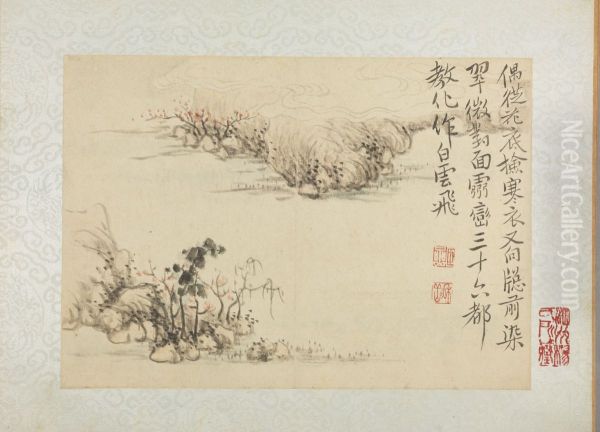 偶從花底檢寒衣又向牕前染
翠微對面靈巒三十六都
教化作白雲飛
NiceArtGallery.com